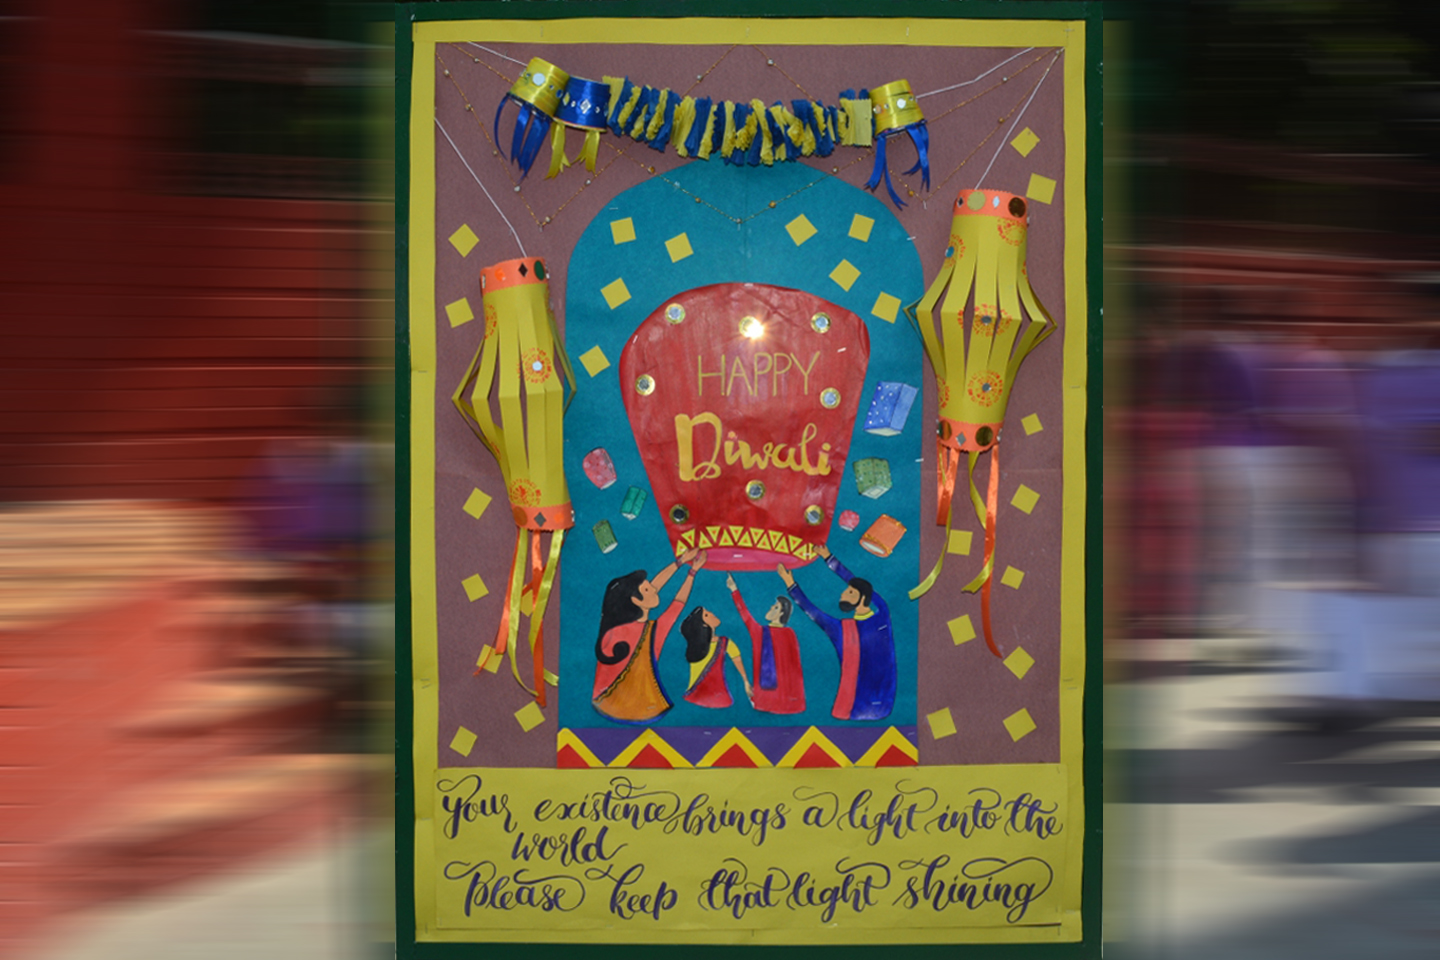 HAPPY
Diwali
your existence brings a light into the
world
please keep that light shining